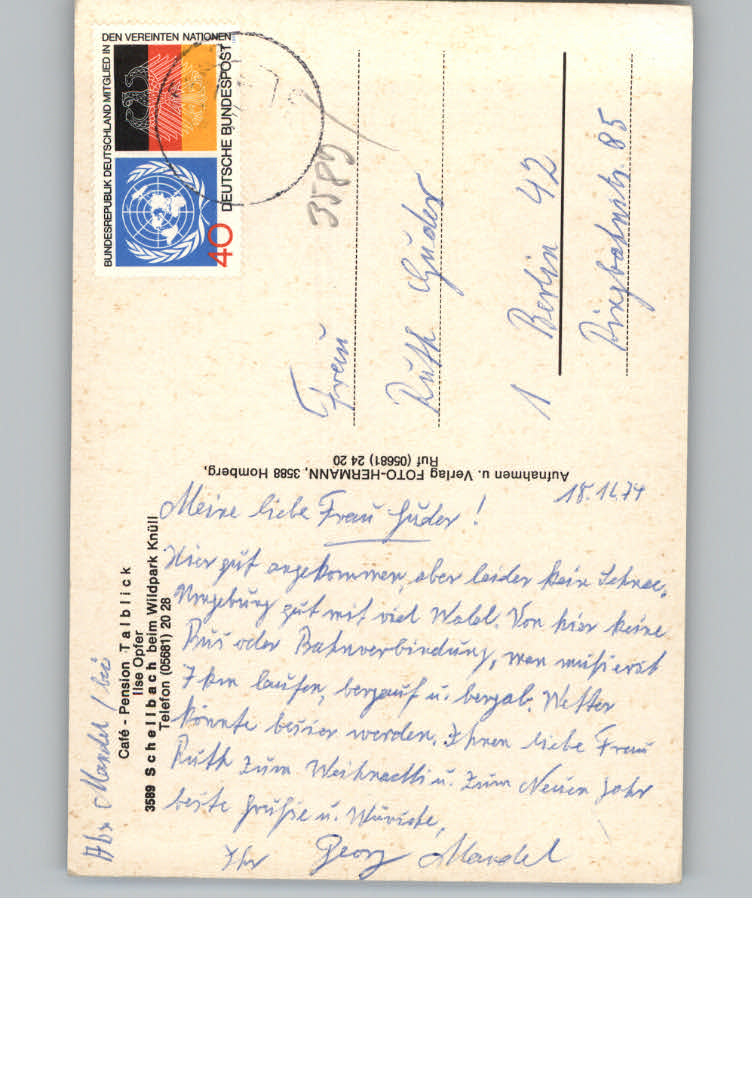 BUNDESREPUBLIK DEUTSCHLAND MITGLIED IN
DEN VEREINTEN NATIONEN
DEUTSCHE BUNDESPOST
40
3589
Frau
Ruth Guder
1 Berlin 42
Ringbahnstr. 85
Aufnahmen u. Verlag FOTO-HERMANN, 3588 Homberg,
Ruf (05681) 24 20
Café - Pension Talblick
Ilse Opfer
3589 Schellbach beim Wildpark Knüll
Telefon (05681) 20 28
Abs Mandel / bei
18.12.74
Meine liebe Frau Guder!
Hier gut angekommen, aber leider kein Schnee.
Umgebung gut mit viel Wald. Von hier keine
Bus oder Bahnverbindung, man muß erst
7 km laufen, bergauf u. bergab. Wetter
könnte besser werden. Ihnen liebe Frau
Ruth zum Weihnachts u. zum Neuen Jahr
beste Grüße u. Wünsche,
Ihr Georg Mandel